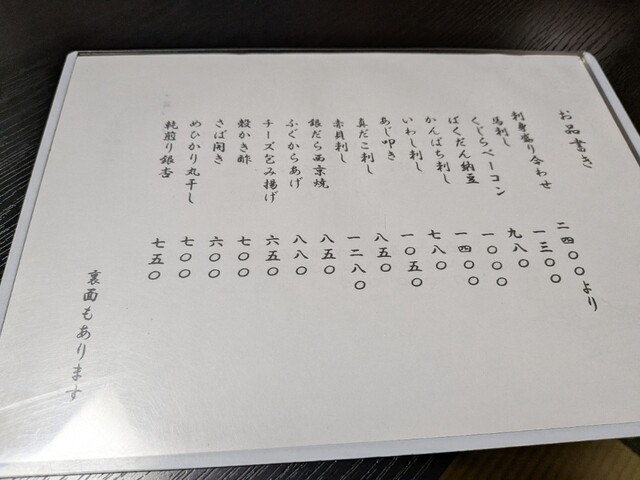 お品書き
刺身盛り合わせ 二四〇〇より
馬刺し 一三〇〇
くじらベーコン 九八〇
ばくだん納豆 一〇〇〇
かんぱち刺し 一四〇〇
いわし刺し 七八〇
あじ叩き 一〇五〇
真だこ刺し 八五〇
赤貝刺し 一二八〇
銀だら西京焼 八五〇
ふぐからあげ 八八〇
チーズ包み揚げ 六五〇
殻かき酢 七〇〇
さば開き 六〇〇
めひかり丸干し 七〇〇
乾煎り銀杏 七五〇
裏面もあります